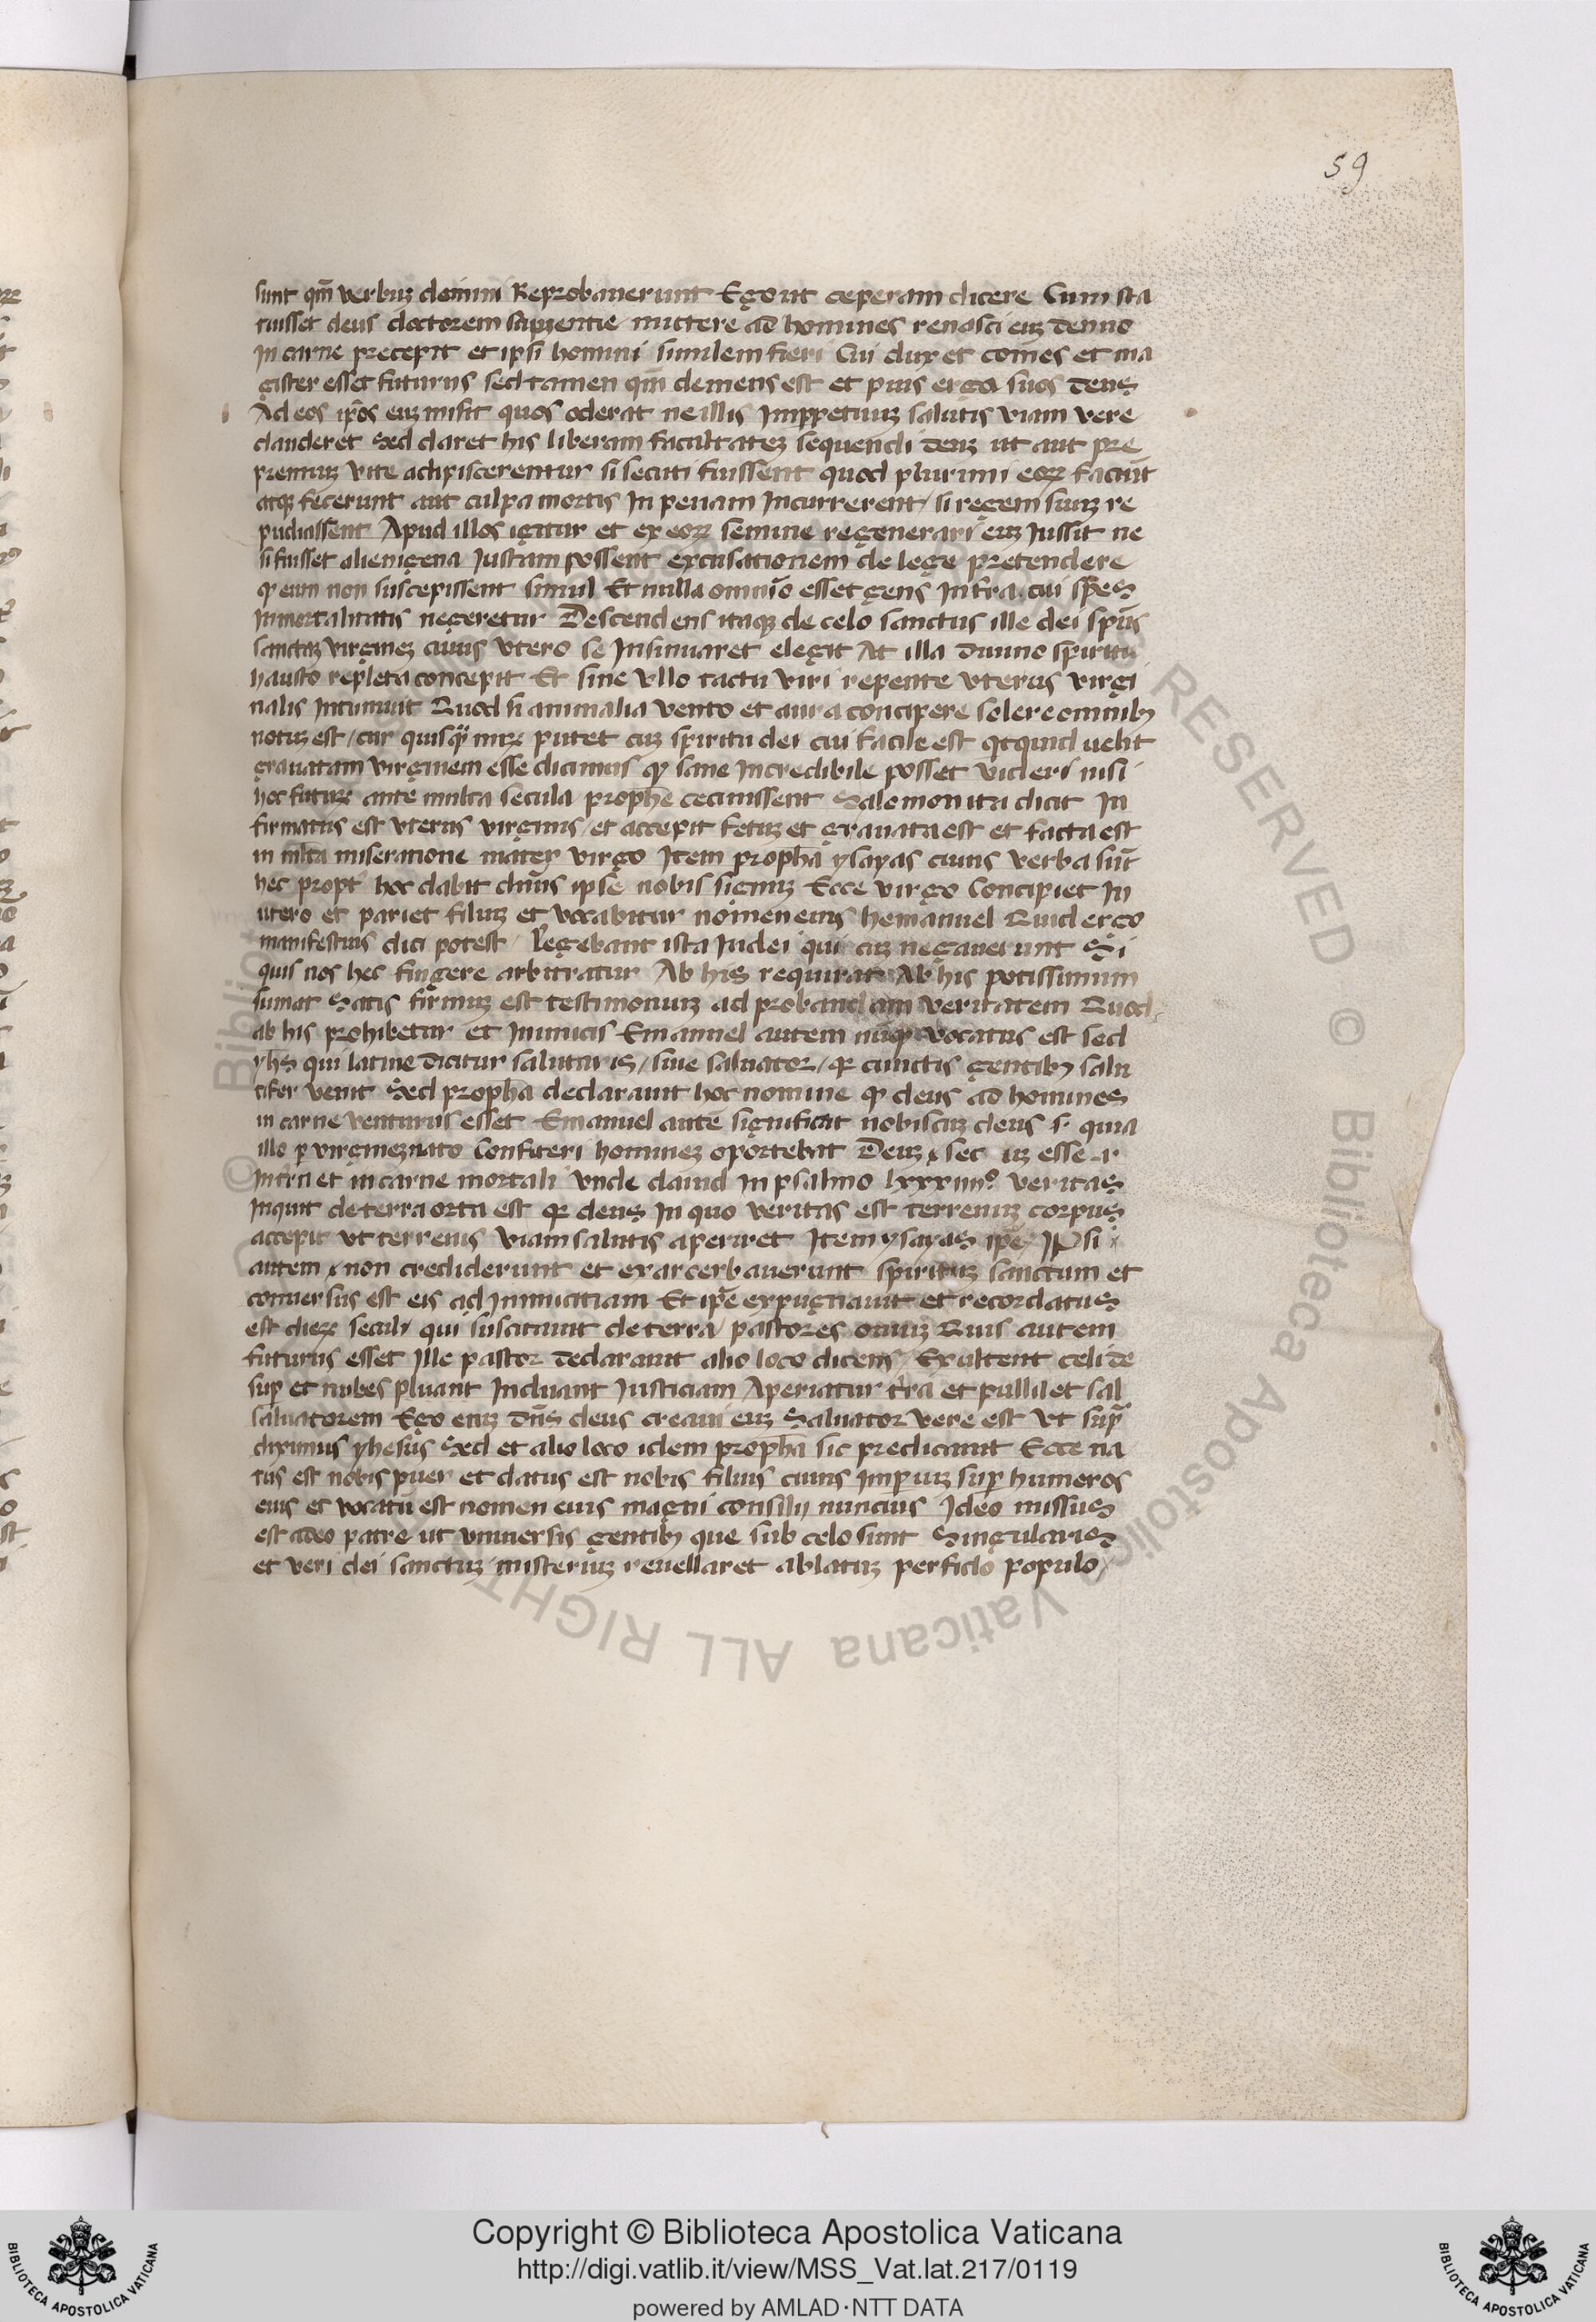 59
sunt qm̄ verbuꝫ domini Reprobauerunt Ego ut ceperam dicere Cum sta
tuisset deus doctorem sapientie mittere ad homines renasci euꝫ denuo
In carne precepit et ipsi homini similem fieri Cui dux et comes et ma
gister esset futurus sed tamen qm̄ clemens est et pius erga suos deus
Ad eos ip̄os euꝫ misit quos oderat ne illis Imppetuuꝫ salutis viam vere
clauderet Sed daret his liberam facultateꝫ sequendi deuꝫ ut aut pre
premiuꝫ vite adipiscerentur si secuti fuissent quod plurimi eoꝝ faciūt
atqꝫ fecerunt aut culpa mortis In penam Incurrerent / si regem suuꝫ re
pudiassent Apud illos igitur et ex eoꝝ semine regenerari euꝫ Iussit ne
si fuisset alienigena Iustam possent excusationem de lege pretendere
ꝙ eum non suscepissent simul Et nulla omnīo esset gens In terra cui spes
Inmortalitatis negeretur Descendens itaqꝫ de celo sanctus ille dei spūs
sanctaꝫ virgineꝫ cuius vtero se Insinuaret elegit At illa diuino spiritu
hausto repleta concepit Et sine vllo tactu viri repente vterus virgi
nalis Intumuit Quod si animalia vento et aura concipere solere omnibꝫ
notuꝫ est / cur quisqꝫ miꝝ putet cuꝫ spiritu dei cui facile est qcquid uelit
grauatam virginem esse dicimus ꝙ sane Incredibile posset videri nisi
hoc futuꝝ ante multa secula prophē cecinissent Salomon ita dicit In
firmatus est vterus virginis / et accepit fetuꝫ et grauata est et facta est
in mlta miseratione mater virgo Item prophā ysayas cuius verba sūt
hec propt̄ hoc dabit dn̄s ipse nobis signuꝫ Ecce virgo Concipiet In
utero et pariet filiuꝫ et vocabitur nomen eius hemanuel Quid ergo
manifestius dici potest / Legebant ista Iudei qui euꝫ negauerunt Si
quis nos hec fingere arbitratur Ab his requirat Ab his potissimum
sumat Satis firmuꝫ est testimoniuꝫ ad probandam veritatem Quod
ab his prohibetur et Inimicis Emanuel autem nūqꝫ vocatus est sed
yhs qui latine dicitur salutaris / siue saluator / qꝛ cunctis gentibꝫ salu
tifer venit Sed prophā declarauit hoc nomine ꝙ deus ad homines
in carne venturus esset Emanuel aute significat nobiscuꝫ deus s. quia
illo ꝑ virgineꝫ nato Confiteri homineꝫ oportebat Deuꝫ sec uꝫ esse
In terra et in carne mortali vnde dauid In psalmo lxxxiiiiº veritas
Inquit de terra orta est qꝛ deus In quo veritas est terrenuꝫ corpus
accepit vt terrenis viam salutis aperiret Item ysayas ip̄e IPsi
autem non crediderunt et exarcerbauerunt spirituꝫ sanctum et
conuersus est eis ad Inimicitiam Et ip̄e expugnauit et recordatus
est dieꝝ seculi qui suscitauit de terra / pastores ouiuꝫ Quis autem
futurus esset Ille pastor declarauit alio loco dicens / Exultent celi de
suꝑ et nubes pluant Induant Iusticiam Aperiatur t̄ra et pullulet sal
saluatorem Ego eniꝫ dn̄s deus creaui euꝫ Saluator vere est vt supꝰ
diximus yhesus Sed et alio loco idem prophā sic predicauit Ecce na
tus est nobis puer et datus est nobis filius cuius Imꝑiuꝫ suꝑ humeros
eius et vocatū est nomen eius magni consilij nuncius Ideo missus
est adeo patre ut vniuersis gentibꝫ que sub celo sunt Singularis
et veri dei sanctuꝫ misteriuꝫ reuellaret ablatuꝫ perfido populo /
Copyright © Biblioteca Apostolica Vaticana
http://digi.vatlib.it/view/MSS_Vat.lat.217/0119
powered by AMLAD·NTT DATA
BIBLIOTECA APOSTOLICA VATICANA
BIBLIOTECA APOSTOLICA VATICANA